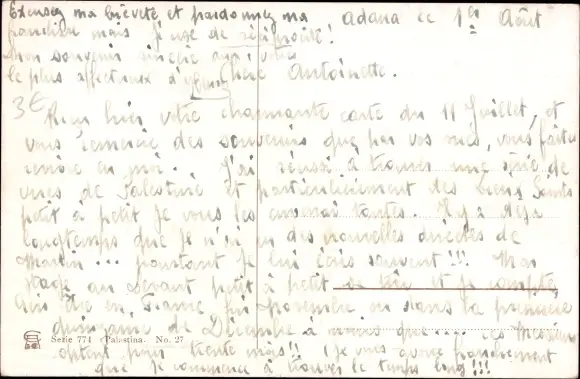 Excusez ma brièveté et pardonnez ma
mais j'use de réciprocité!
Mon souvenir sincère aux vôtres
le plus affectueux à
Adana le 1er Août
chère Antoinette.
3€
Reçu hier votre charmante carte du 11 Juillet, et
vous remercie des souvenirs que par vos vues, vous faites
en moi. J'ai réussi à trouver une série de
vues de Palestine et particulièrement des Lieux Saints
petit à petit je vous les enverrai toutes. Il y a déjà
longtemps que je n'ai eu des nouvelles directes de
Martin ... pourtant je lui écris souvent!!! Mon
stage au Levant petit à petit se tire et je compte
être en France fin novembre ou dans la première
quinzaine de Décembre à moins que .... ces Messieurs
optent pour trente mois!! (Je vous avoue franchement
que je commence à trouver le temps long!!!
Serie 774 Palestina. No. 27